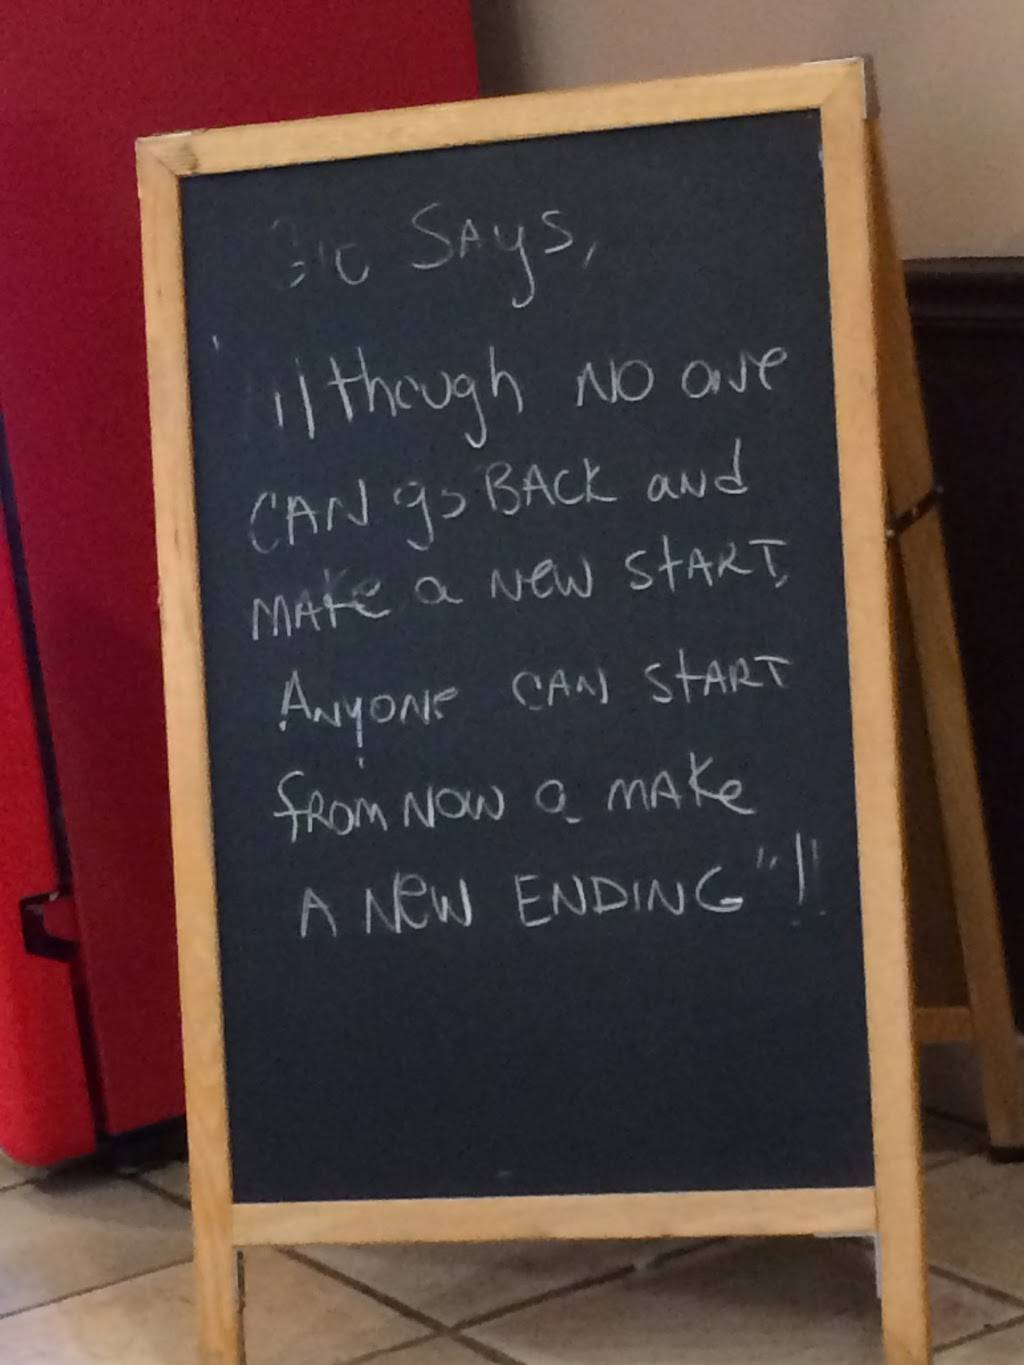 Says,
Although NO one
CAN go BACK and
MAKe a New START,
ANyONe CAN START
fROM NOW a MAKe
A New ENDING"!!